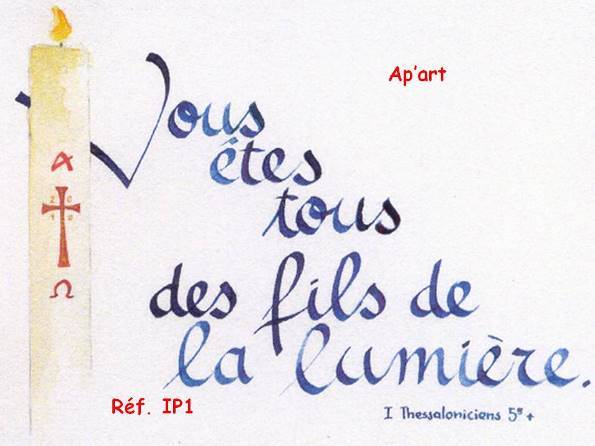 Ap'art
Vous
êtes
tous
des fils de
la lumière.
A
20
10
Ω
I Thessaloniciens 5
Réf. IP1